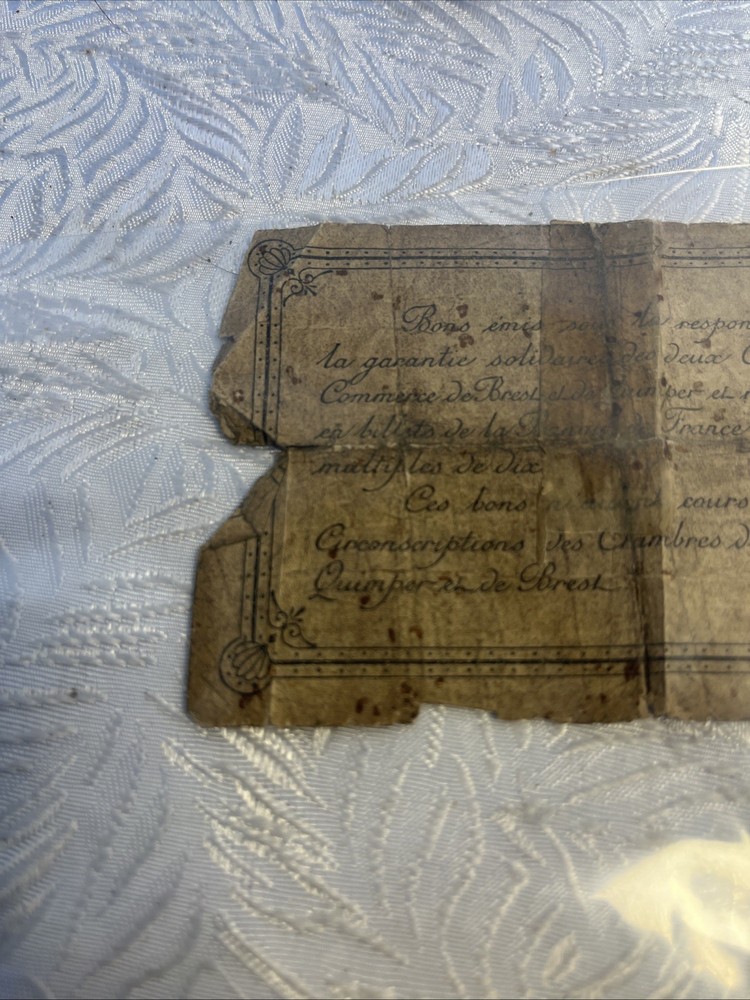 Bons émis sous la respon
la garantie solidaire des deux C
Commerce de Brest et de Quimper et r
en billets de la Banque de France
multiples de dix
Ces bons n'auront cours
Circonscriptions des Chambres d
Quimper et de Brest